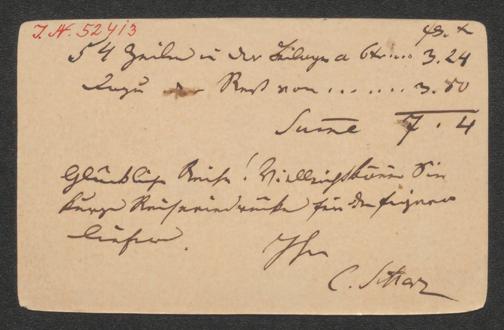 J.N. 52413
fl. x
54 Zeilen in der Beilage a 6 kr.... 3.24
dazu der Rest von ....... 3.80
Summe 7.4
Glückliche Reise! Vielleicht können Sie
kurze Reiseeindrücke für den
liefern.
Ihr
C.